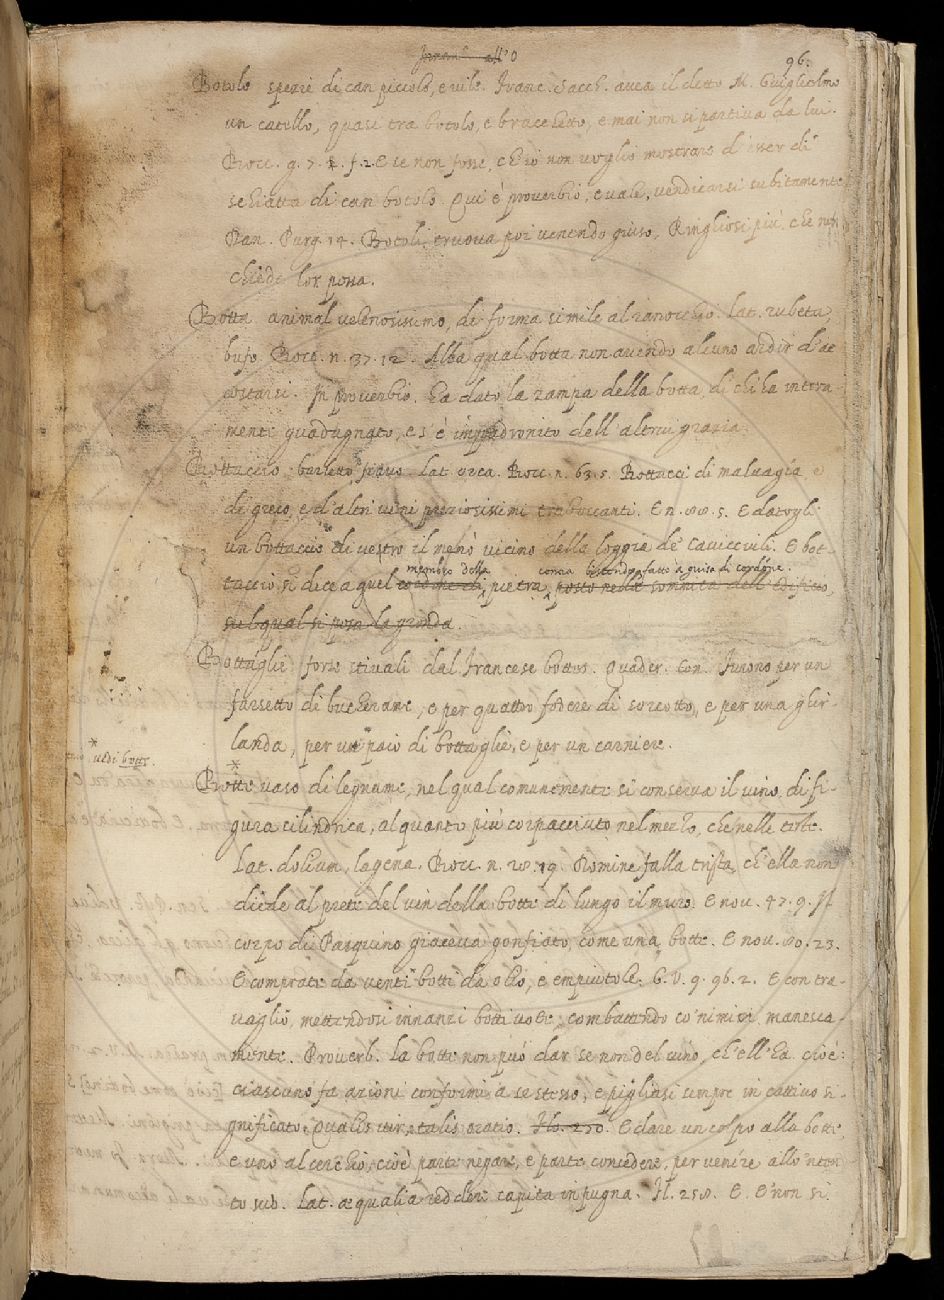 96.
Botolo spezie di can piccolo, e vile. Franc. Sacch. avea il detto M. Guiglielmo
un catello, quasi tra botolo, e bracchetto, e mai non si partiva da lui.
Bocc. g. 7. f. 2. E se non fosse, ch'io non voglio mostrare d'esser di
schiatta di can botolo Qui è proverbio, e vale, vendicarsi subitamente
Dan. Purg. 14. Botoli truova poi venendo giuso, Ringhiosi più, che non
chiede lor possa.
Botta animal velenosissimo, di forma simile al ranocchio. Lat. rubeta,
bufo. Bocc. n. 37. 12. Alla qual botta non avendo alcuno ardir d'ac
costarsi. In proverbio. Ha dato la zampa della botta, di chi ha intera-
mente guadagnato, e s'è impadronito dell'altrui grazia
Bottaccio barletto fiasco. Lat. orca. Bocc. n. 63. 5. Bottacci di malvagia e
di greco, e d'altri vini preziosissimi traboccanti. E n. 88. 5. E datogli
un bottaccio di vetro il menò vicino della loggia de' Caviccivli. E bot-
membro della conca bistondo, fatto a guisa di cordone.
taccio si dice a quel di pietra, posto nella sommità dell'edificio,
sul qual si posa la gronda.
Bottaglie forse stivali dal francese bottes. Quader. Con. Furono per un
farsetto di bucherame, e per quattro fodere di sorcotto, e per una ghir-
landa, per un paio di bottaglie, e per un carniere.
* vedi botte.
* Botte vaso di legname, nel qual comunemente si conserva il vino, di fi-
gura cilindrica, alquanto più corpacciuto nel mezzo, che nelle teste.
Lat. dolium, lagena. Bocc. n. 28. 19. Domine falla trista, ch'ella non
diede al prete del vin della botte di lungo il muro. E nov. 47. 9. Il
corpo di Pasquino giaceva gonfiato, come una botte. E nov. 80. 23.
E comprate da venti botti da olio, e empiutole. G. V. 9. 96. 2. E con tra-
vaglio, mettendosi innanzi botti vote, combattendo co' nimici manesca-
mente. Proverb. La botte non può dar se non del vino, ch'ell'ha cioè:
ciascuno fa azioni conformi a se stesso, e pigliasi sempre in cattivo si-
gnificato. Qualis vir, talis oratio. Flo. 270. E dare un colpo alla botte,
e uno al cerchio, cioè parte negare, e parte concedere, per venire allo
to suo. Lat. æqualia reddere capita in pugna. Fl. 258. E. E non si